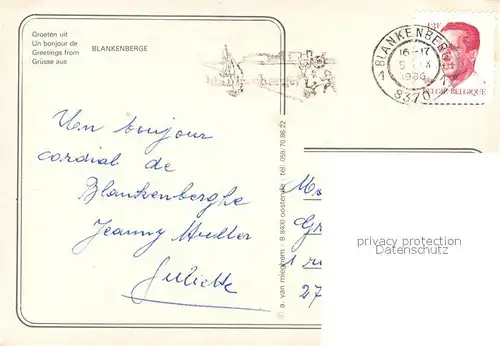 Groeten uit
Un bonjour de
Greetings from BLANKENBERGE
Grüsse aus
BLANKENBERGE
16-17
1986
1 8370 1
13F
BELGIË-BELGIQUE
Un bonjour
cordial de
Blankenberghe
Jeanny Muller
Juliette
a. van mieghem - B 8400 oostende - tel: 059/70.86.22
privacy protection
Datenschutz
1
27